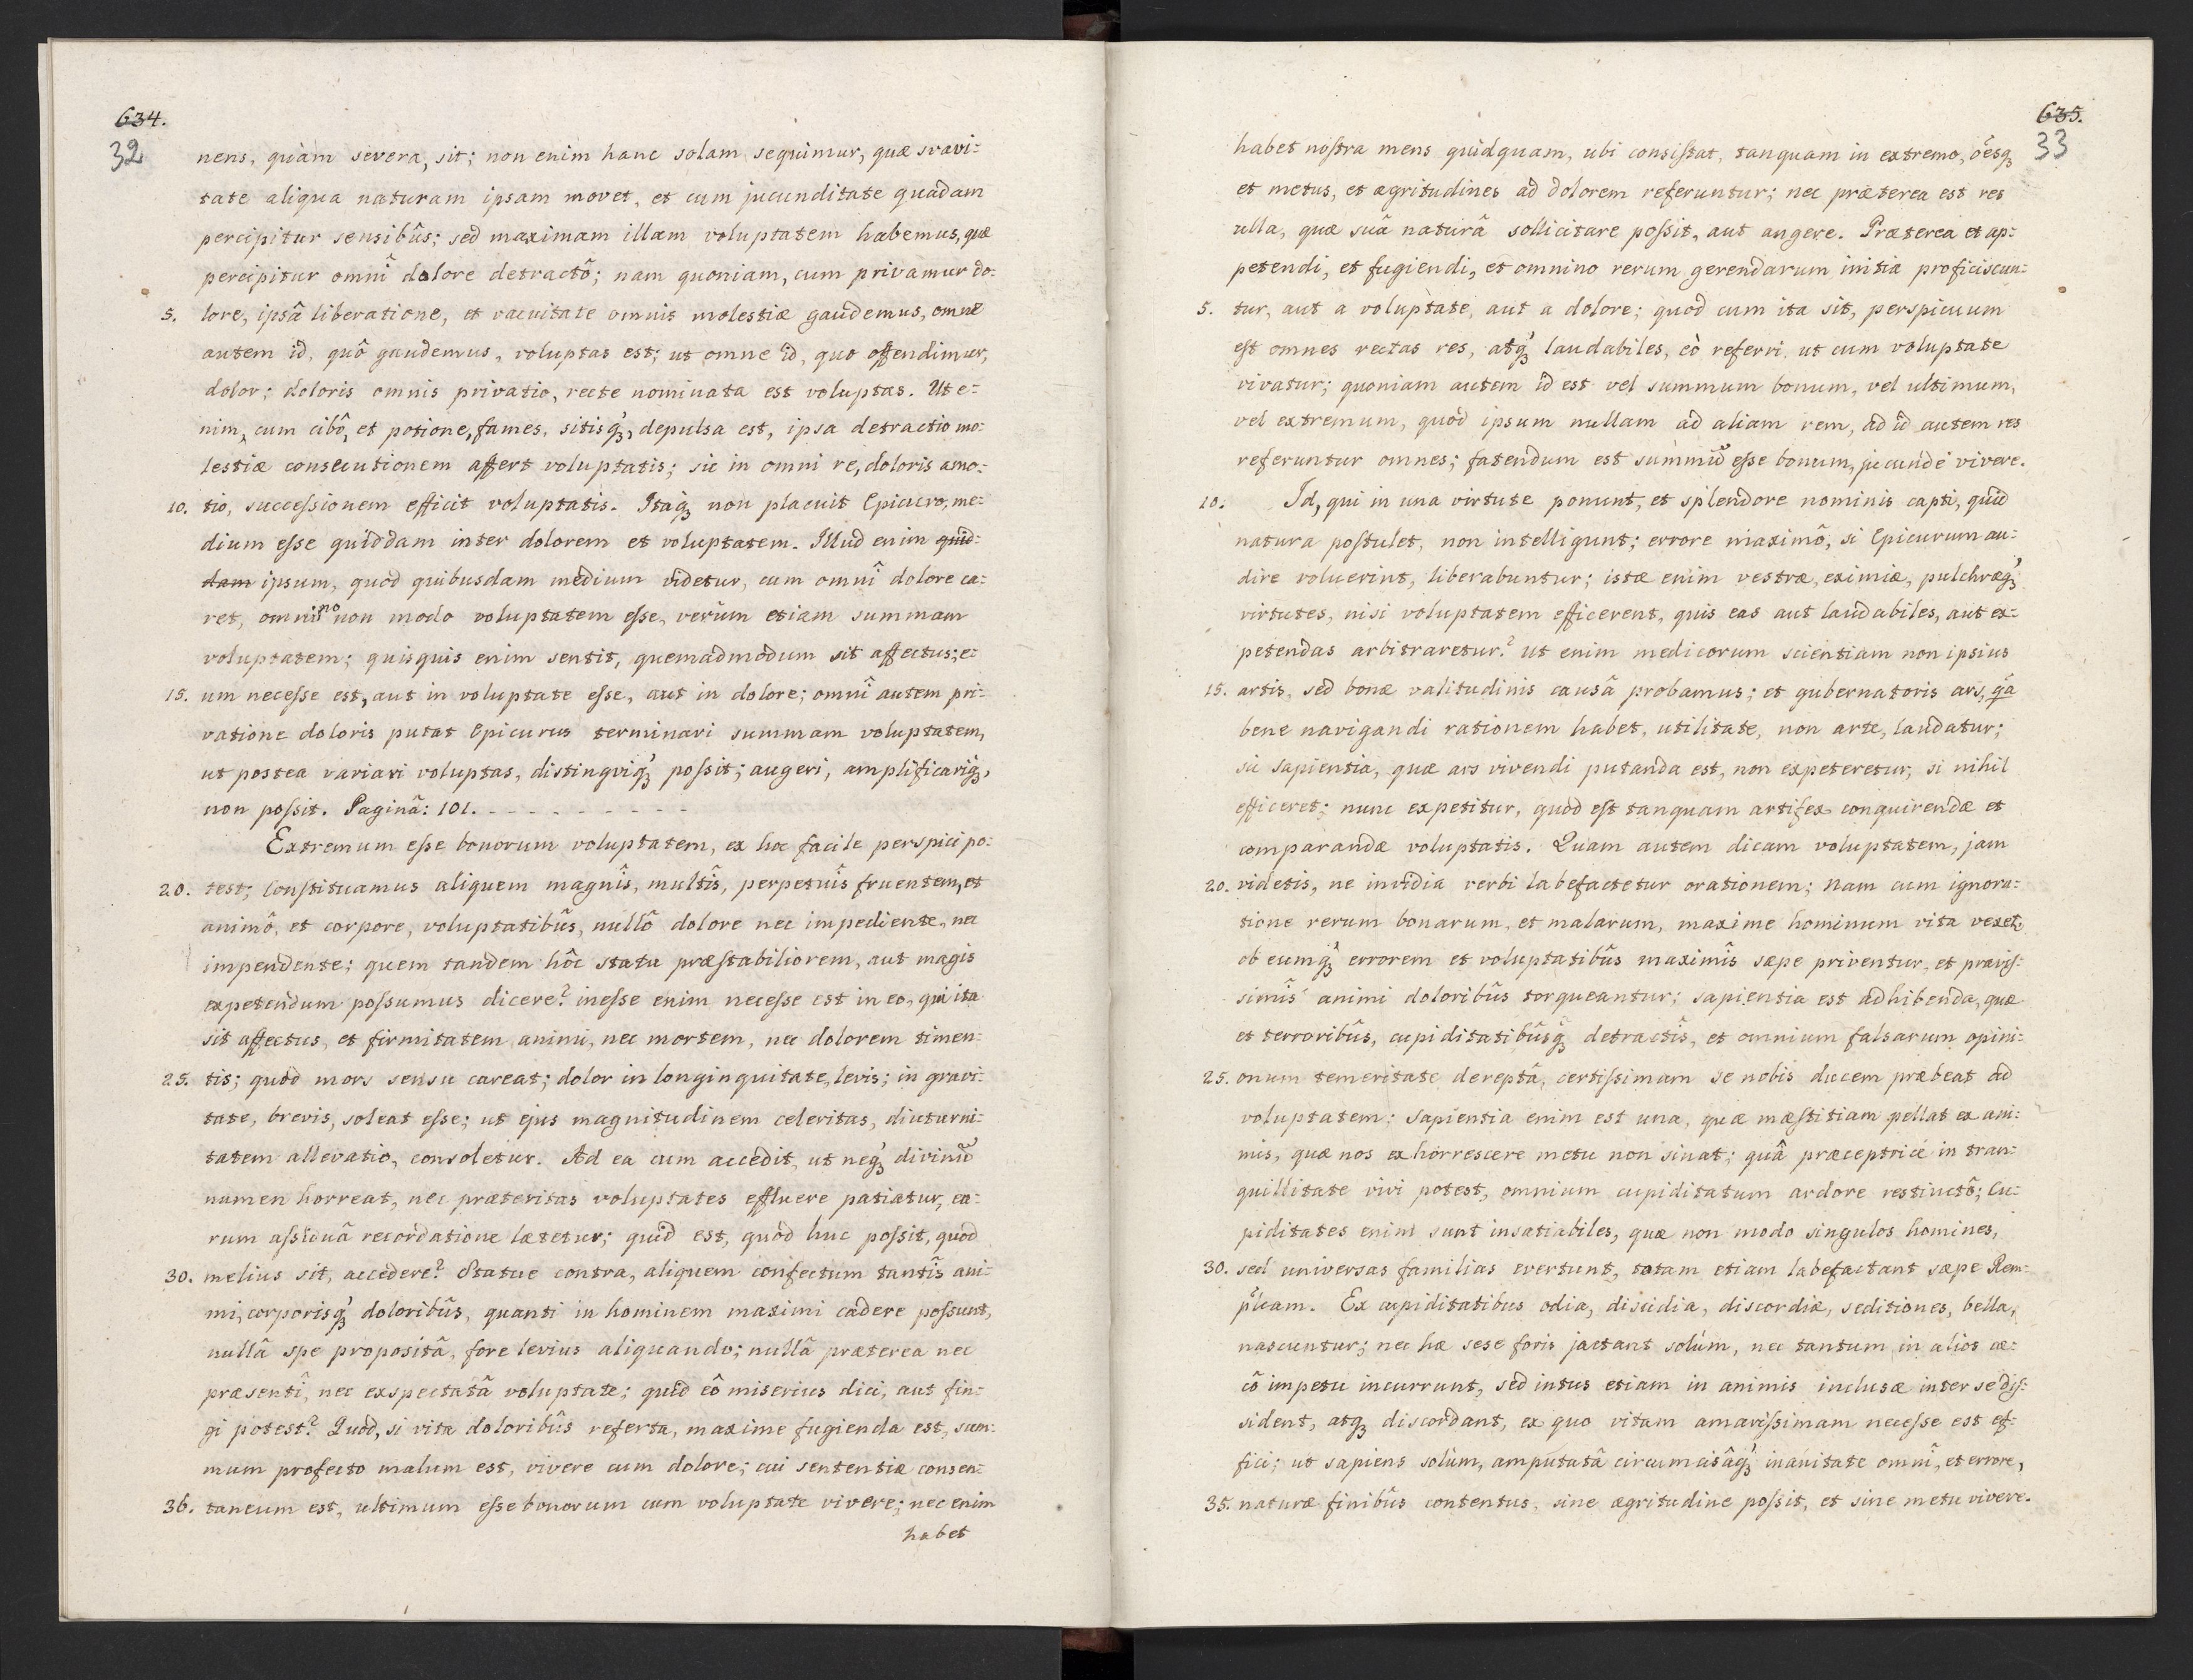 634.
32
nens, quàm severa, sit; non enim hanc solam sequimur, quæ svavi:
tate aliqua naturam ipsam movet, et cum jucunditate quadam
percipitur sensibûs; sed maximam illam voluptatem habemus, quæ
percipitur omnî dolore detractô; nam quoniam, cum privamur do:
5. lore, ipsâ liberatione, et vacuitate omnis molestiæ gaudemus, omne
autem id, quô gaudemus, voluptas est; ut omne id, quo offendimur,
dolor; doloris omnis privatio, recte nominata est voluptas. Ut e:
nim, cum cibô, et potione, fames, sitisq́ꝫ, depulsa est, ipsa detractio mo:
lestiæ consecutionem affert voluptatis; sic in omni re, doloris amo:
10. tio, succeſsionem efficit voluptatis. Itaq́ꝫ non placuit Epicuro, me:
dium eſse quiddam inter dolorem et voluptatem. Illud enim quid:
dam ipsum, quod quibusdam medium videtur, cum omnî dolore ca:
ret, omnino non modo voluptatem eſse, verùm etiam summam
voluptatem; quisquis enim sentit, quemadmodum sit affectus; e:
15. um neceſse est, aut in voluptate eſse, aut in dolore; omnî autem pri:
vatione doloris putat Epicurus terminari summam voluptatem,
ut postea variari voluptas, distingviq́ꝫ poſsit; augeri, amplificariq́ꝫ,
non poſsit. Paginâ: 101. - - - - - - - - - -
Extremum eſse bonorum voluptatem, ex hoc facile perspici po:
20. test; Conſtituamus aliquem magnîs, multîs, perpetuîs fruentem, et
animô, et corpore, voluptatibûs, nullô dolore nec impediente, nec
impendente; quem tandem hôc statu præſtabiliorem, aut magis
expetendum poſsumus dicere? ineſse enim neceſse est in eo, qui ita
sit affectus, et firmitatem animi, nec mortem, nec dolorem timen:
25. tis; quòd mors sensu careat; dolor in longinquitate, levis; in gravi:
tate, brevis, soleat eſse; ut ejus magnitudinem celeritas, diuturni:
tatem allevatio, consoletur. Ad ea cum accedit, ut neq́ꝫ divinū
numen horreat, nec præteritas voluptates effluere patiatur, ea:
rum aſsiduâ recordatione lætetur; quid est, quòd huc poſsit, quod
30. melius sit, accedere? Statue contra, aliquem confectum tantîs ani:
mi, corporisq́ꝫ doloribûs, quanti in hominem maximi cadere poſsunt,
nullâ spe propositâ, fore levius aliquando; nullâ præterea nec
præsentî, nec exspectatâ voluptate; quid eô miserius dici, aut fin:
gi potest? Quòd, si vita doloribûs referta, maxime fugienda est, sum:
mum profecto malum est, vivere cum dolore; cui sententiæ consen:
36. taneum est, ultimum eſse bonorum cum voluptate vivere; nec enim
habet
635.
33
habet noſtra mens quidquam, ubi consiſtat, tanquam in extremo, o͠esqꝫ
et metus, et ægritudines ad dolorem referuntur; nec præterea est res
ulla, quæ suâ naturâ sollicitare poſsit, aut angere. Præterea et ap:
petendi, et fugiendi, et omnino rerum gerendarum initia proficiscun:
5. tur, aut a voluptate, aut a dolore; quod cum ita sit, perspicuum
eſt omnes rectas res, atq́ꝫ laudabiles, eò referri, ut cum voluptate
vivatur; quoniam autem id est vel summum bonum, vel ultimum,
vel extremum, quod ipsum nullam ad aliam rem, ad id autem res
referuntur omnes; fatendum est summū eſse bonum, jucundè vivere.
10. Id, qui in una virtute ponunt, et splendore nominis capti, quid
natura poſtulet, non intelligunt; errore maximô, si Epicurum au:
dire voluerint, liberabuntur; istæ enim vestræ, eximiæ, pulchræq́ꝫ
virtutes, nisi voluptatem efficerent, quis eas aut laudabiles, aut ex:
petendas arbitraretur? ut enim medicorum scientiam non ipsius
15. artis, sed bonæ valitudinis causâ probamus; et gubernatoris ars, q̃a
bene navigandi rationem habet, utilitate, non arte, laudatur;
sic sapientia, quæ ars vivendi putanda est, non expeteretur, si nihil
efficeret; nunc expetitur, quòd eſt tanquam artifex conquirendæ et
comparandæ voluptatis. Quam autem dicam voluptatem, jam
20. videtis, ne invidia verbi labefactetur orationem; Nam cum ignora:
tione rerum bonarum, et malarum, maxime hominum vita vexet,
ob eumq́ꝫ errorem et voluptatibûs maximîs sæpe priventur, et praviſ:
simîs animi doloribûs torqueantur; sapientia est adhibenda, quæ
et terroribûs, cupiditatibûsq́ꝫ detractîs, et omnium falsarum opini:
25. onum temeritate dereptâ, certiſsimam se nobis ducem præbeat ad
voluptatem; Sapientia enim est una, quæ mæſtitiam pellat ex ani:
mis, quæ nos exhorrescere metu non sinat; quâ præceptrice in tran:
quillitate vivi potest, omnium cupiditatum ardore restinctô; Cu:
piditates enim sunt insatiabiles, quæ non modo singulos homines,
30. sed universas familias evertunt, totam etiam labefactant sæpe Rem:
p̃licam. Ex cupiditatibus odia, discidia, discordiæ, seditiones, bella,
nascuntur; nec hæ sese foris jactant solùm, nec tantum in alios cæ:
cô impetu incurrunt, sed intus etiam in animis inclusæ inter se diſ:
sident, atqꝫ discordant, ex quo vitam amariſsimam neceſse est ef:
fici; ut sapiens solùm, amputatâ circumcisâq́ꝫ inanitate omnî, et errore,
35. naturæ finibûs contentus, sine ægritudine poſsit, et sine metu vivere.